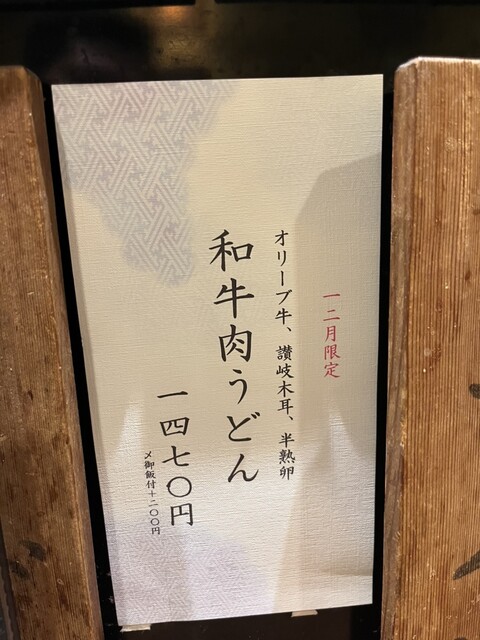 一二月限定
オリーブ牛、讃岐木耳、半熟卵
和牛肉うどん
一四七〇円
〆御飯付+二〇〇円